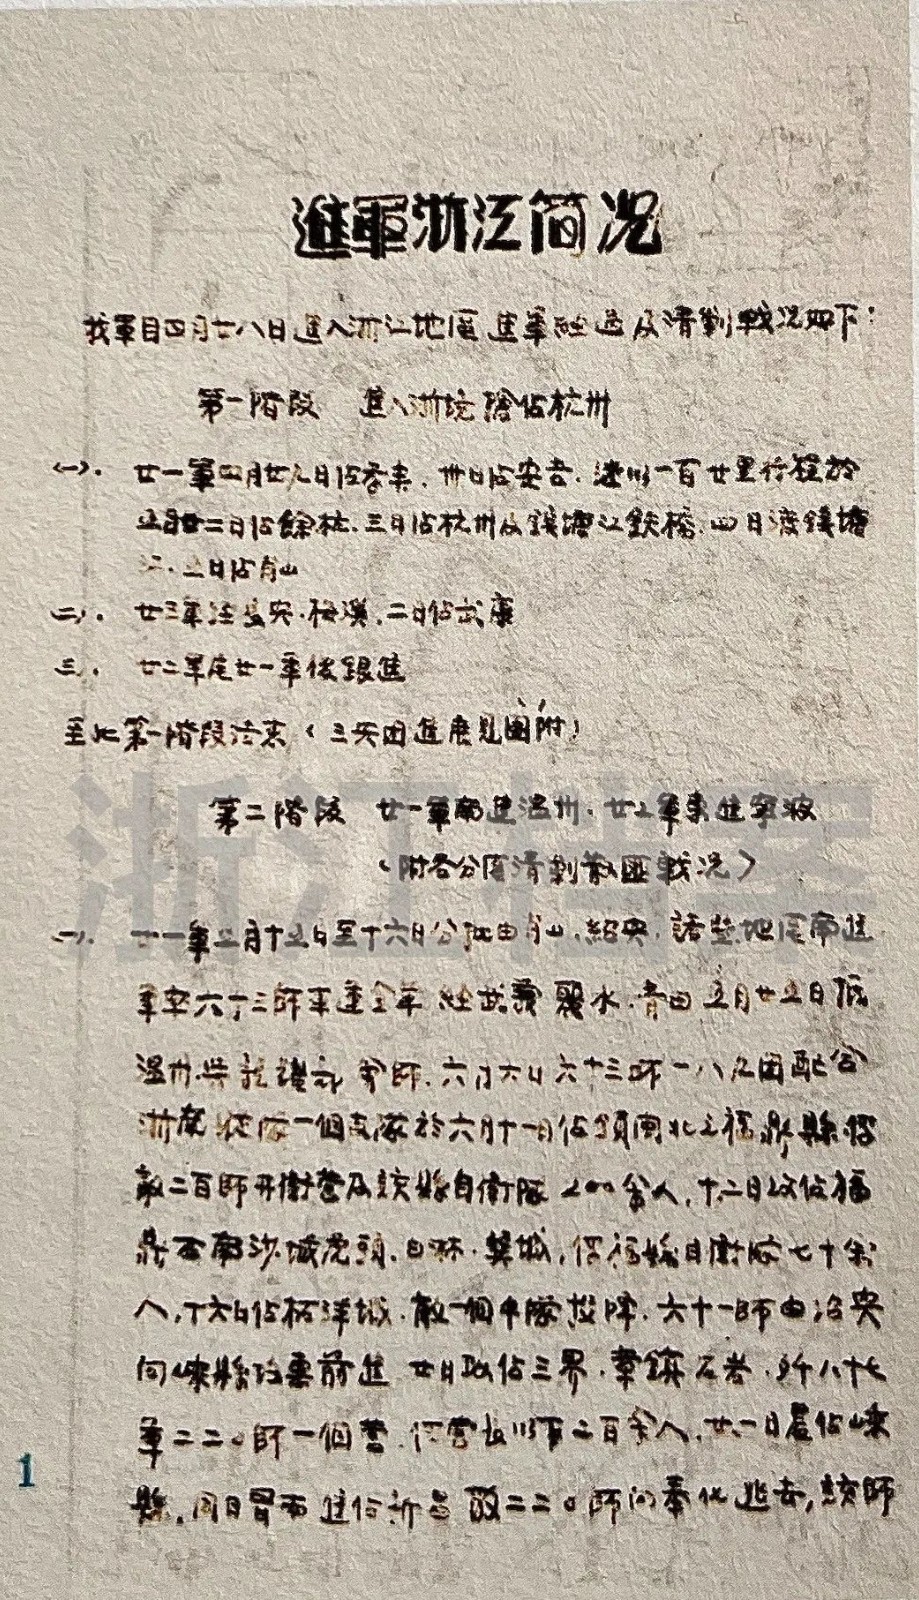 進軍浙江简况
我軍自四月廿八日進入浙江地區進軍經過及清剿戰况如下:
第一階段 進入浙境搶佔杭州
(一). 廿一軍四月廿九日佔孝丰、卅日佔安吉. 速以一百廿里行程於
五月二日佔餘杭. 三日佔杭州及錢塘江鉄橋. 四日渡錢塘
江. 五日佔肖山
(二). 廿三軍 長兴. 梅溪. 二日佔武康
三. 廿二軍尾廿一軍後跟進
至此第一階段结束 (三 進展見圖附)
第二階段 廿一軍南進温州. 廿二軍東進宁波
(附各分區清剿散匪戰况)
(一). 廿一軍五月十五日至十六日分批由肖山、紹興、諸暨地區南進
軍率六十三師 經武義 麗水. 青田五月廿五日抵
温州 會師. 六月六日六十三師一八九团配合
浙 一個支隊於六月十一日佔領閩北之福鼎縣俘
敵二百師 衛营及該縣自衛隊200余人, 十二日 佔福
鼎西南沙埕 . 白琳. , 俘福 縣自衛隊七十余
人, 十六日佔柘洋城. 敵一個中隊投降. 六十一師由 興
向嵊縣 前進 廿日 佔三界. 章鎮 . 八十七
軍二二〇師一個营. 俘营长以下二百余人. 廿一日晨佔嵊
縣. 同日冒雨進佔新昌 敵二二〇師向奉化逃去, 該師
浙江档案
1